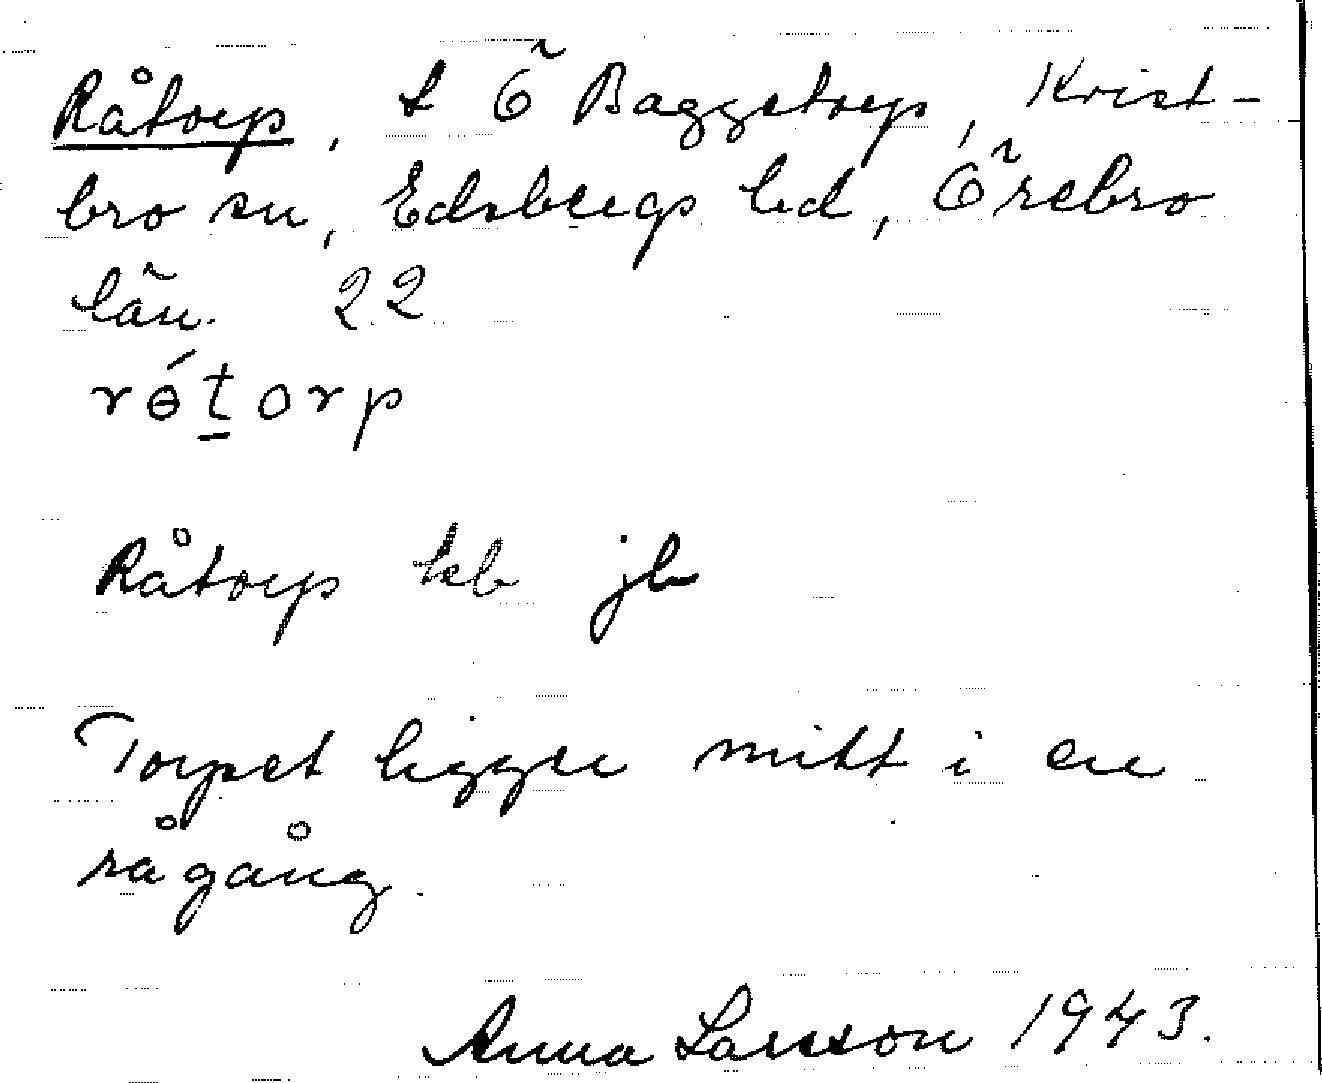 Råtorp, t Ö Baggetorp, Krist-
bro sn, Edsbergs hd, Örebro
län. 22
rɵ́t̠orp
Råtorp kb jb
Torpet ligger mitt i en
rågång.
Anna Larsson 1943.